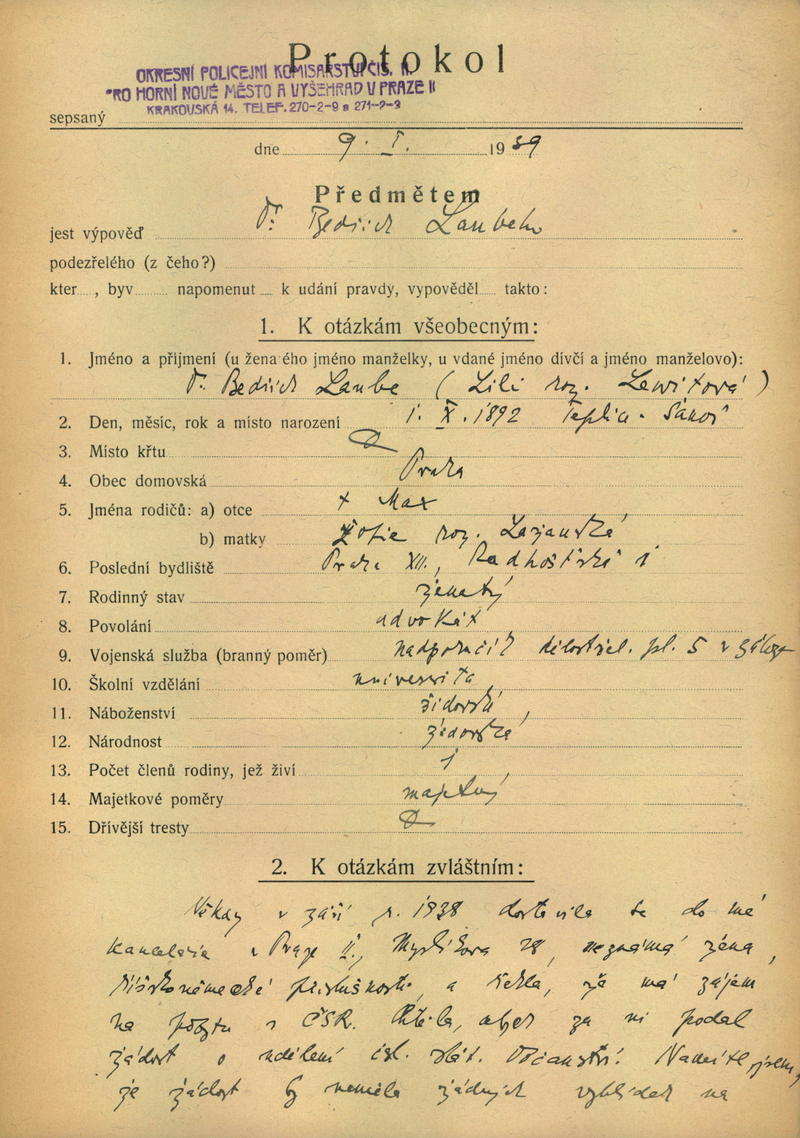 Protokol
OKRESNÍ POLICEJNÍ KOMISAŘSTVÍ
HORNÍ NOVÉ MĚSTO A VYŠEHRAD V PRAZE II
KRAKOVSKÁ 14. TELEF. 270-2-9 a 271-?-9
sepsaný
dne 9. I. 1939
Předmětem
jest výpověď Dr. Bedřich Laube
podezřelého (z čeho?)
kter , byv napomenut k udání pravdy, vypověděl takto:
1. K otázkám všeobecným:
1. Jméno a příjmení (u ženatého jméno manželky, u vdané jméno dívčí a jméno manželovo):
Dr. Bedřich Laube (Lili roz. Lewitová)
2. Den, měsíc, rok a místo narození 1. X. 1892 Teplic. Šanov
3. Místo křtu
4. Obec domovská Praha
5. Jména rodičů: a) otce + Max
b) matky Žofie roz.
6. Poslední bydliště Praha XII., Radhošťská 1
7. Rodinný stav ženatý
8. Povolání advokát
9. Vojenská služba (branný poměr) nadporučík dělostřel. pl. 5 v záloze
10. Školní vzdělání universita
11. Náboženství židovské
12. Národnost židovská
13. Počet členů rodiny, jež živí 1
14. Majetkové poměry majetný
15. Dřívější tresty
2. K otázkám zvláštním:
Někdy v září r. 1938 dostavila se do mé
kanceláře v Praze II., Myslíkova 28, neznámá žena,
říškoněmecké příslušnosti, a řekla, že má zájem
na pobytu v ČSR. Chtěla, abych za ni podal
žádost o udělení čsl. stát. občanství. Namítl jsem,
že žádost by neměla žádných vyhlídek na